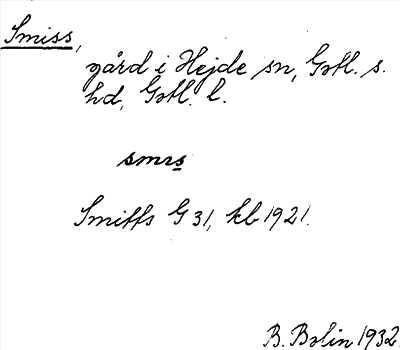 Smiss,
gård i Hejde sn, Gotl. s.
hd, Gotl. l.
smɪs
Smitfs G 31, kb 1921.
B. Bolin 1932.